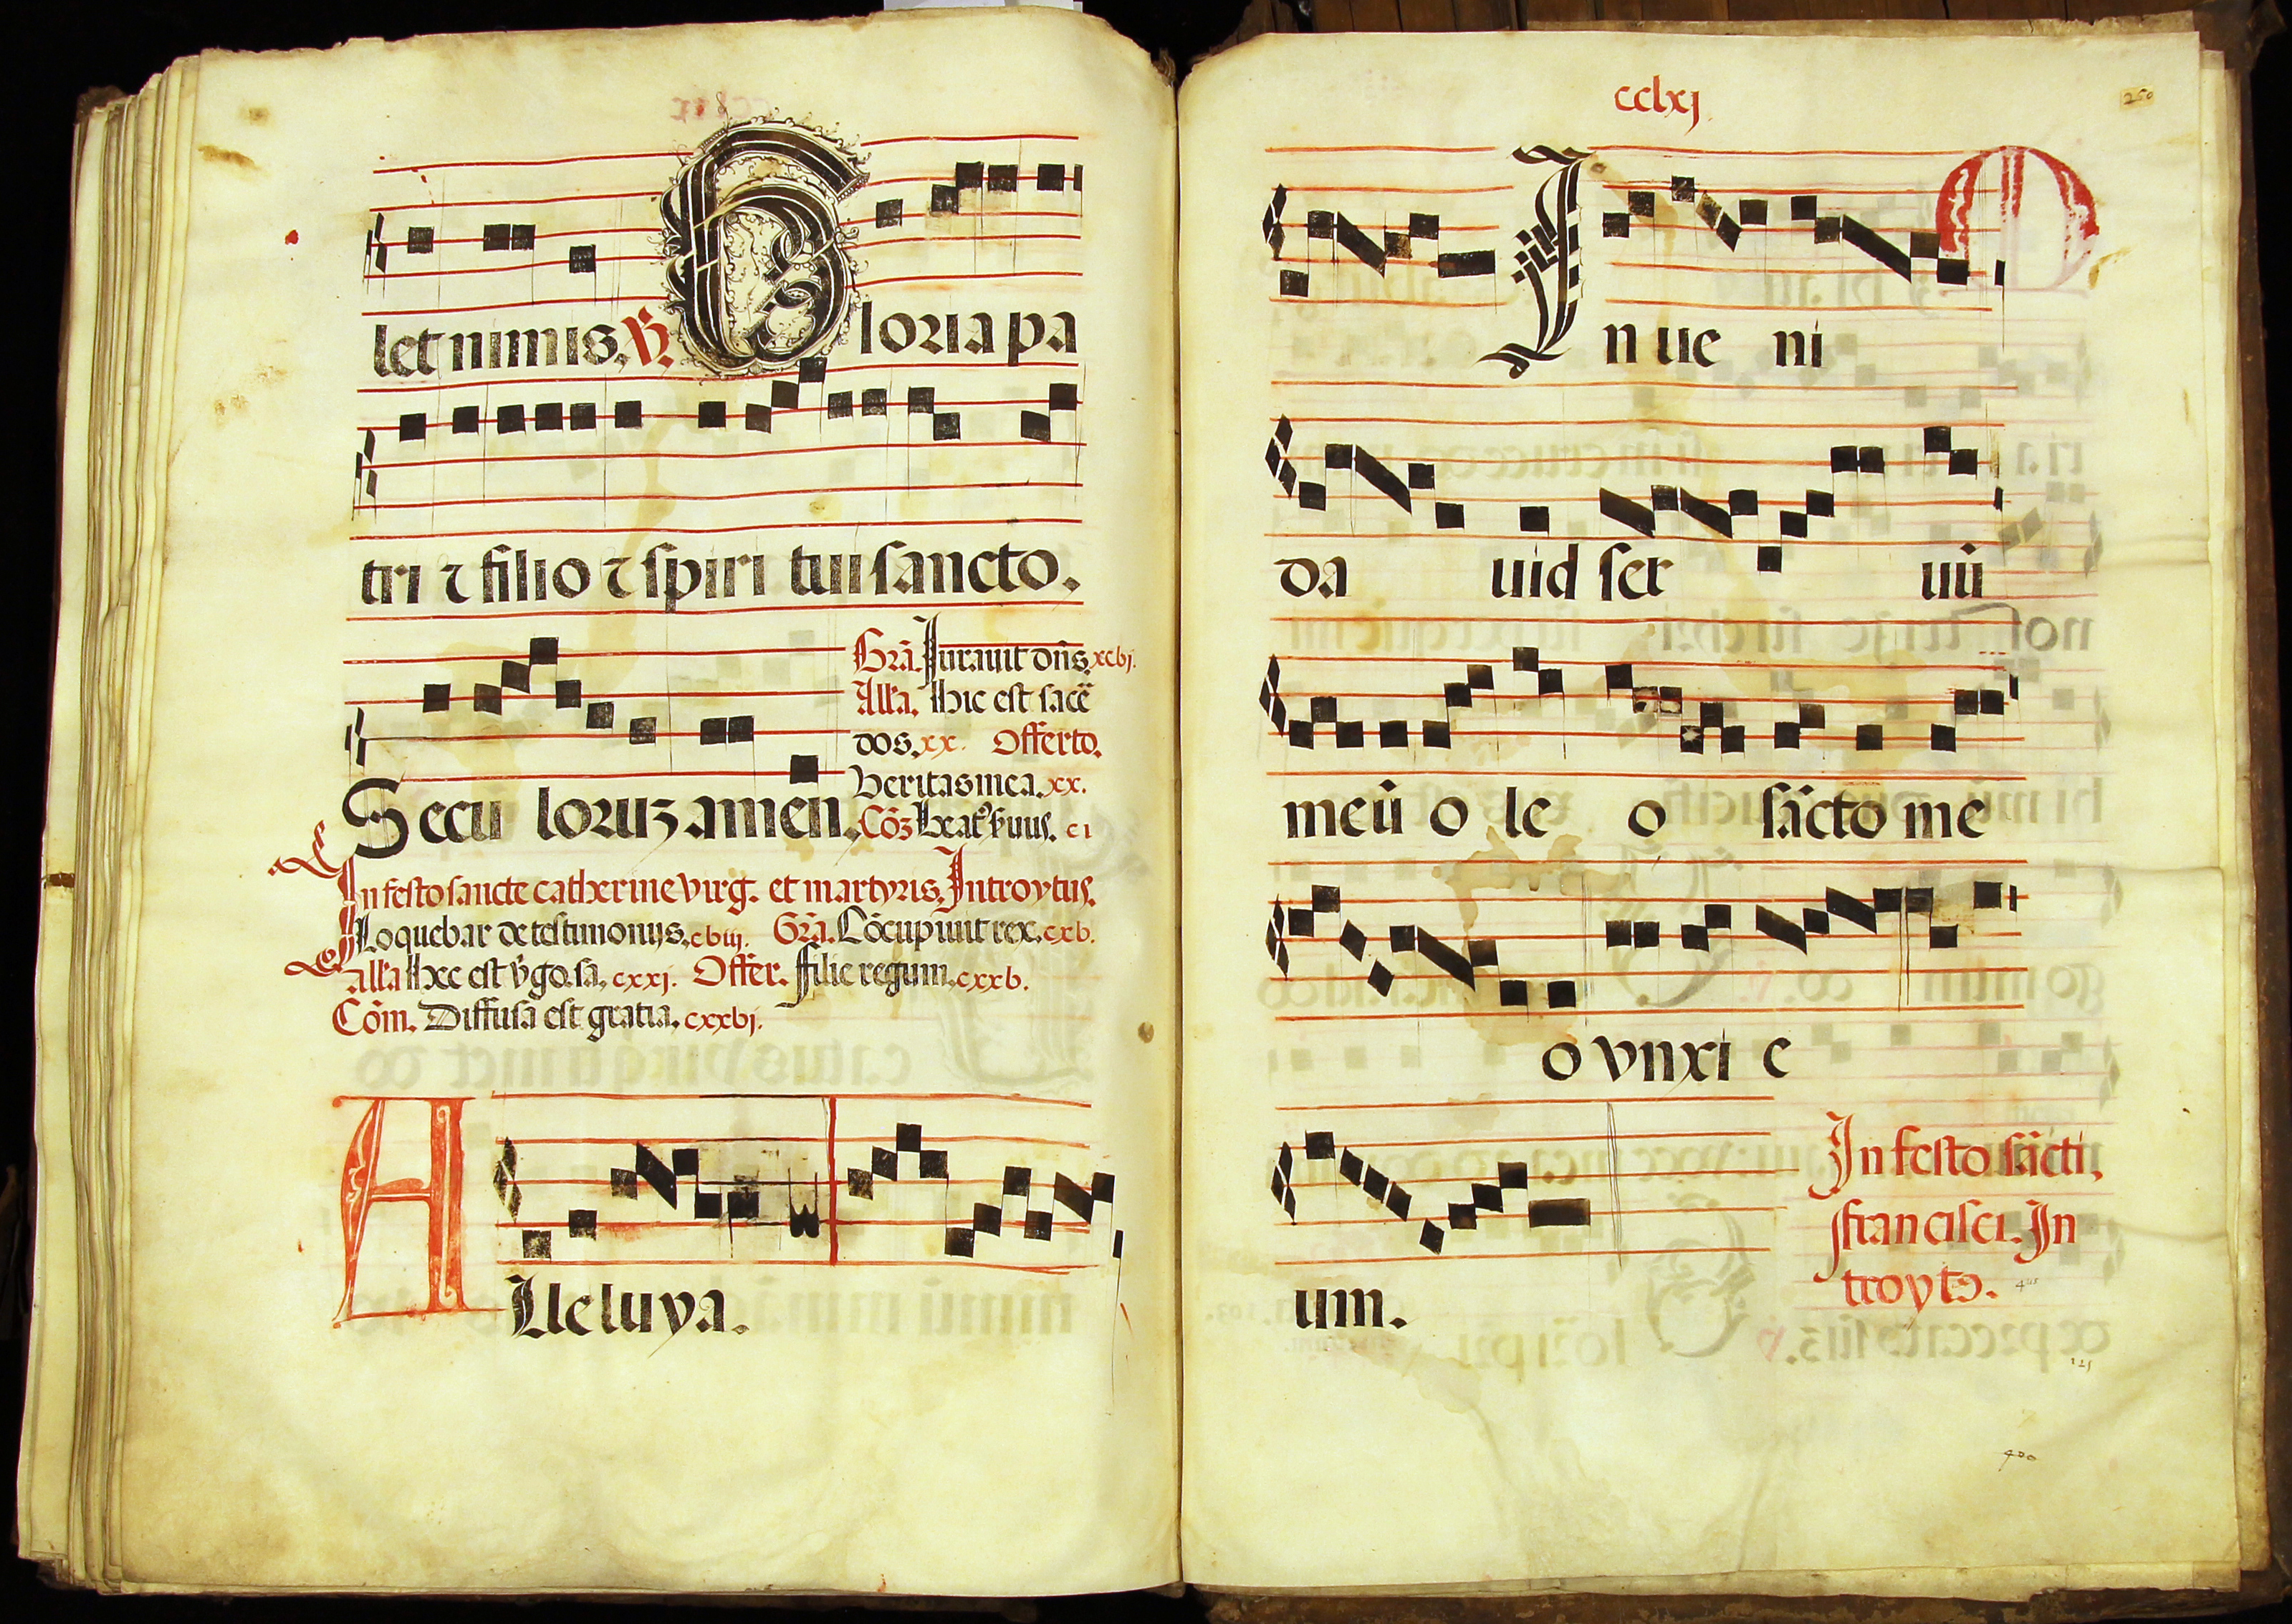 let nimis. V. Gloria pa
tri ⁊ filio ⁊ spiri tui sancto.
Secu loruȝ amen.
Grã. Jurauit dñs. xcvj.
Alla. Hic est sacẽ
dos. xx. Offerto.
Veritas mea. xx.
Cõȝ ci
In festo sancte catherine virg. et martyris. Introytus.
Loquebar de testimonijs. cviij. Grã. Cõcupiuit rex. cxv.
Alla Hec est vgo. sa. cxxj. Offer. ffilie regum. cxxv.
Cõm. Diffusa est gratia. cxxvj.
Alleluya.
cclxj
250
In ue ni
da uid ser uũ
meũ o le o sãcto me
o vnxi e
um.
In festo sãcti
ffrancisci. In
troyt9.
400